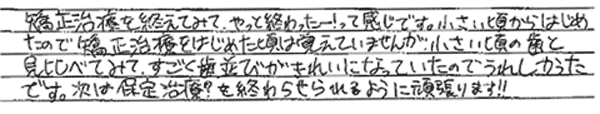 矯正治療を終えてみて、やっと終わったー!って感じです。小さい頃からはじめ
たので矯正治療をはじめた頃は覚えていませんが、小さい頃の歯と
見比べてみて、すごく歯並びがきれいになっていたのでうれしかった
です。次は保定治療?を終わらせられるように頑張ります!!